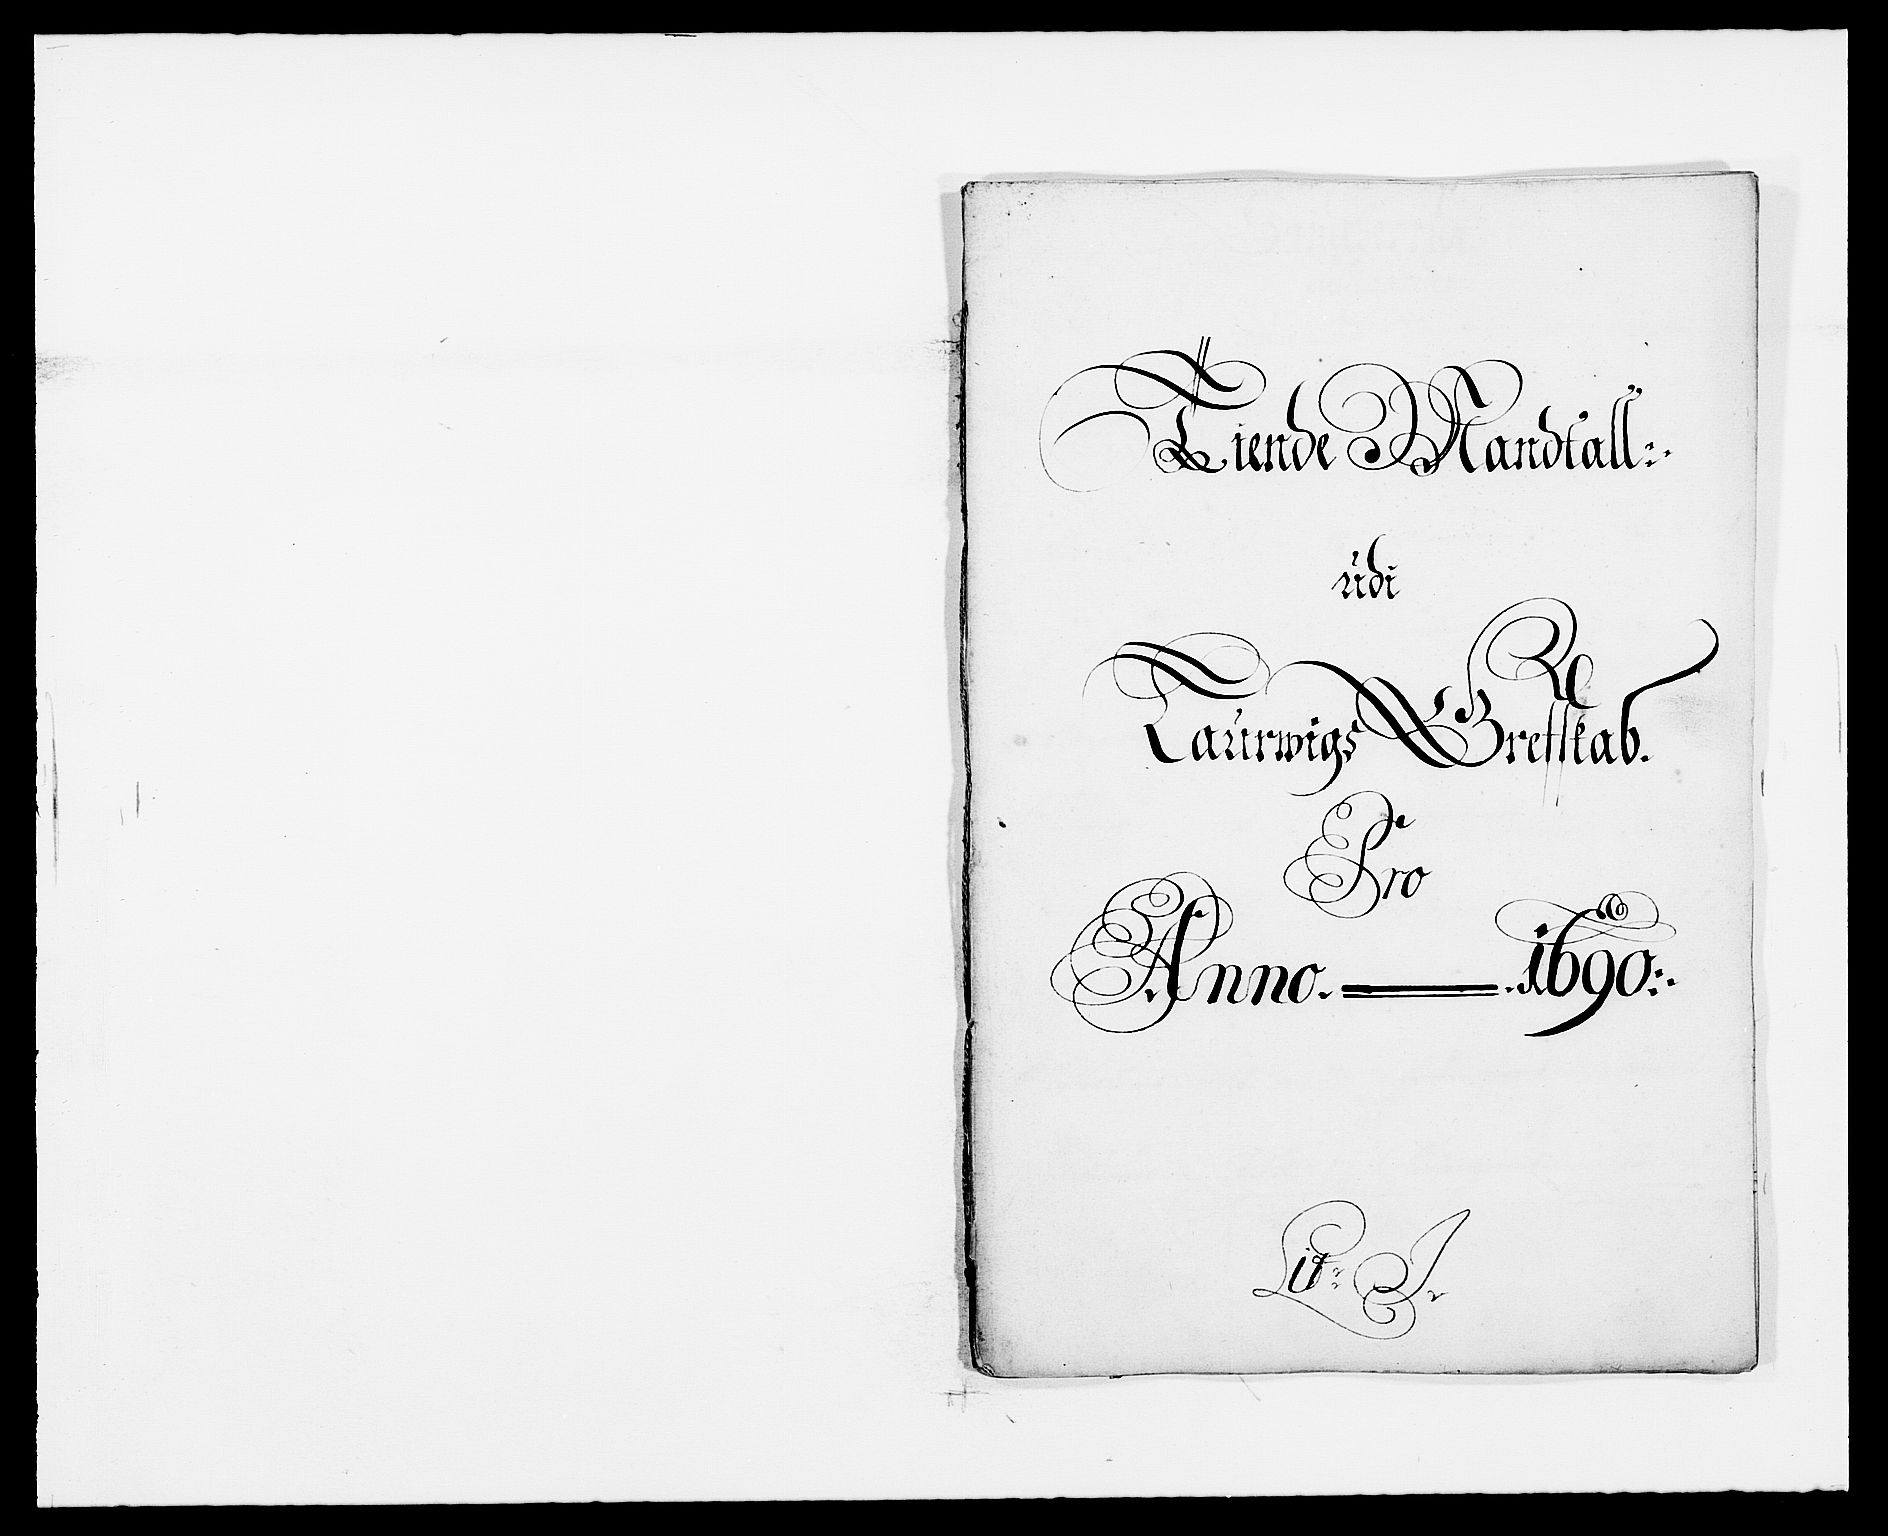 Tiende Mandtall
udi
Laurwigs Grefskab.
Pro
Anno. 1690
Lit: J.